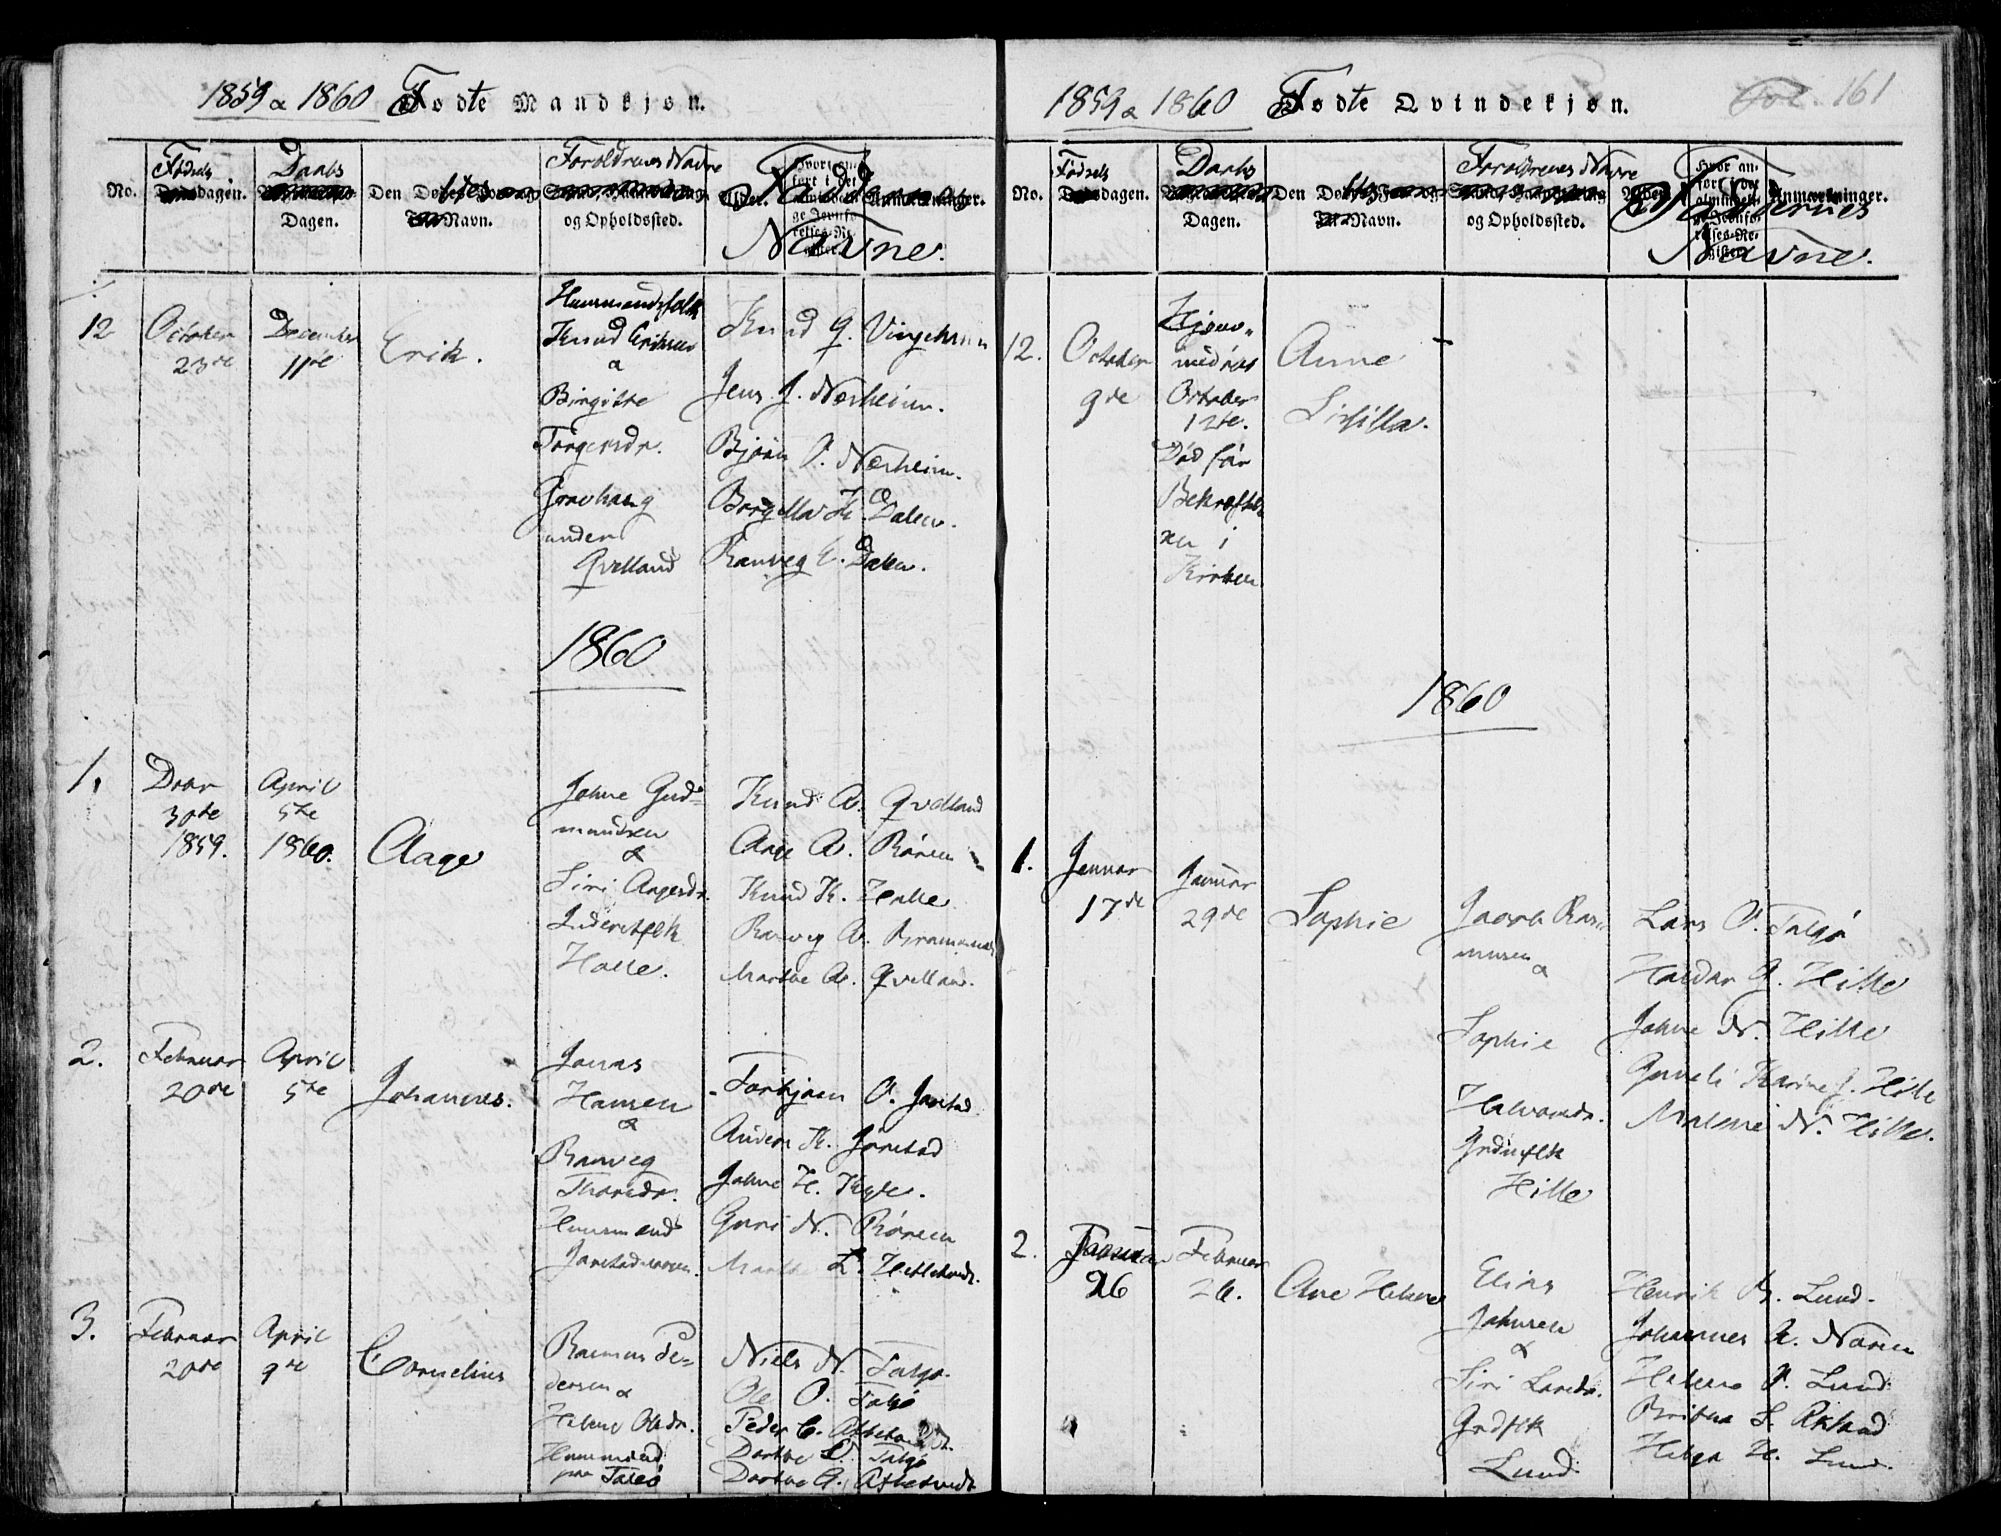 1859 & 1860 Fødte Mandkjøn.
No.
Fødselsdagen.
Daabs Dagen.
Den Døbtes Navn.
Forældrenes Navne og Opholdssted.
Faddernes Navne.
12
October
23de
December
11te
Erik.
Huusmandsfolk
Knud Eriksen
&
Birgitte
Torgersdr.
Grovhaug
under
Qvelland
Knud
Jens J. Nerheim.
Bjørn O. Nerheim.
K. Dalen.
Ranveg E. Dalen.
1860
1.
Dcbr
30te
1859.
April
5te
1860.
Aage
Johne Gud=
mundsen
&
Siri Aagesdr.
Inderstfolk
Halle.
Knud A. Qvelland
Aage A. Røren
Knud K. Halle
Ranveg A.
Marthe A. Qvelland.
2.
Februar
20de
April
5te
Johannes.
Jonas
Hansen
&
Ranveg
Thoredr.
Huusmand
Torbjøen O. Jørstad
Anders K. Jørstad
Johne H.
Guri N. Røren
Marthe L.
3.
Februar
20de
April
9de
Cornelius
Rasmus Pe=
dersen &
Helene Olsdr.
Huusmand
paa Talgø
Niels N. Talgø
Ole O. Talgø
Peder C.
Dorthe D. Talgø
Dorthe G.
1859 & 1860 Fødte Qvindekjøn.
Fol. 161
No.
Fødselsdagen.
Daabs Dagen.
Den Døbtes Navn.
Forældrenes Navne og Opholdssted.
Faddernes Navne.
12.
October
9de
Hjem=
medøbt
October
12te.
Død før
Bekræftel
sen i
Kirken
Anne
Sisilla.
1860
1.
Januar
17de
Januar
29de
Sophie
Jacob Ras=
musen
&
Sophie
Halvorsdr.
Grdmflk
Hille
Lars O. Talgø
Haldor G. Hille
Johne N. Hille
Gunneli Karine J. Hille
Malene N. Hille.
2.
Januar
26
Februar
26.
Ane Helene
Elias
Johnsen
&
Siri Larsdr.
Grdflk
Lund
Henrik B. Lund.
Johannes A.
Helene O. Lund
Helga H. Lund.